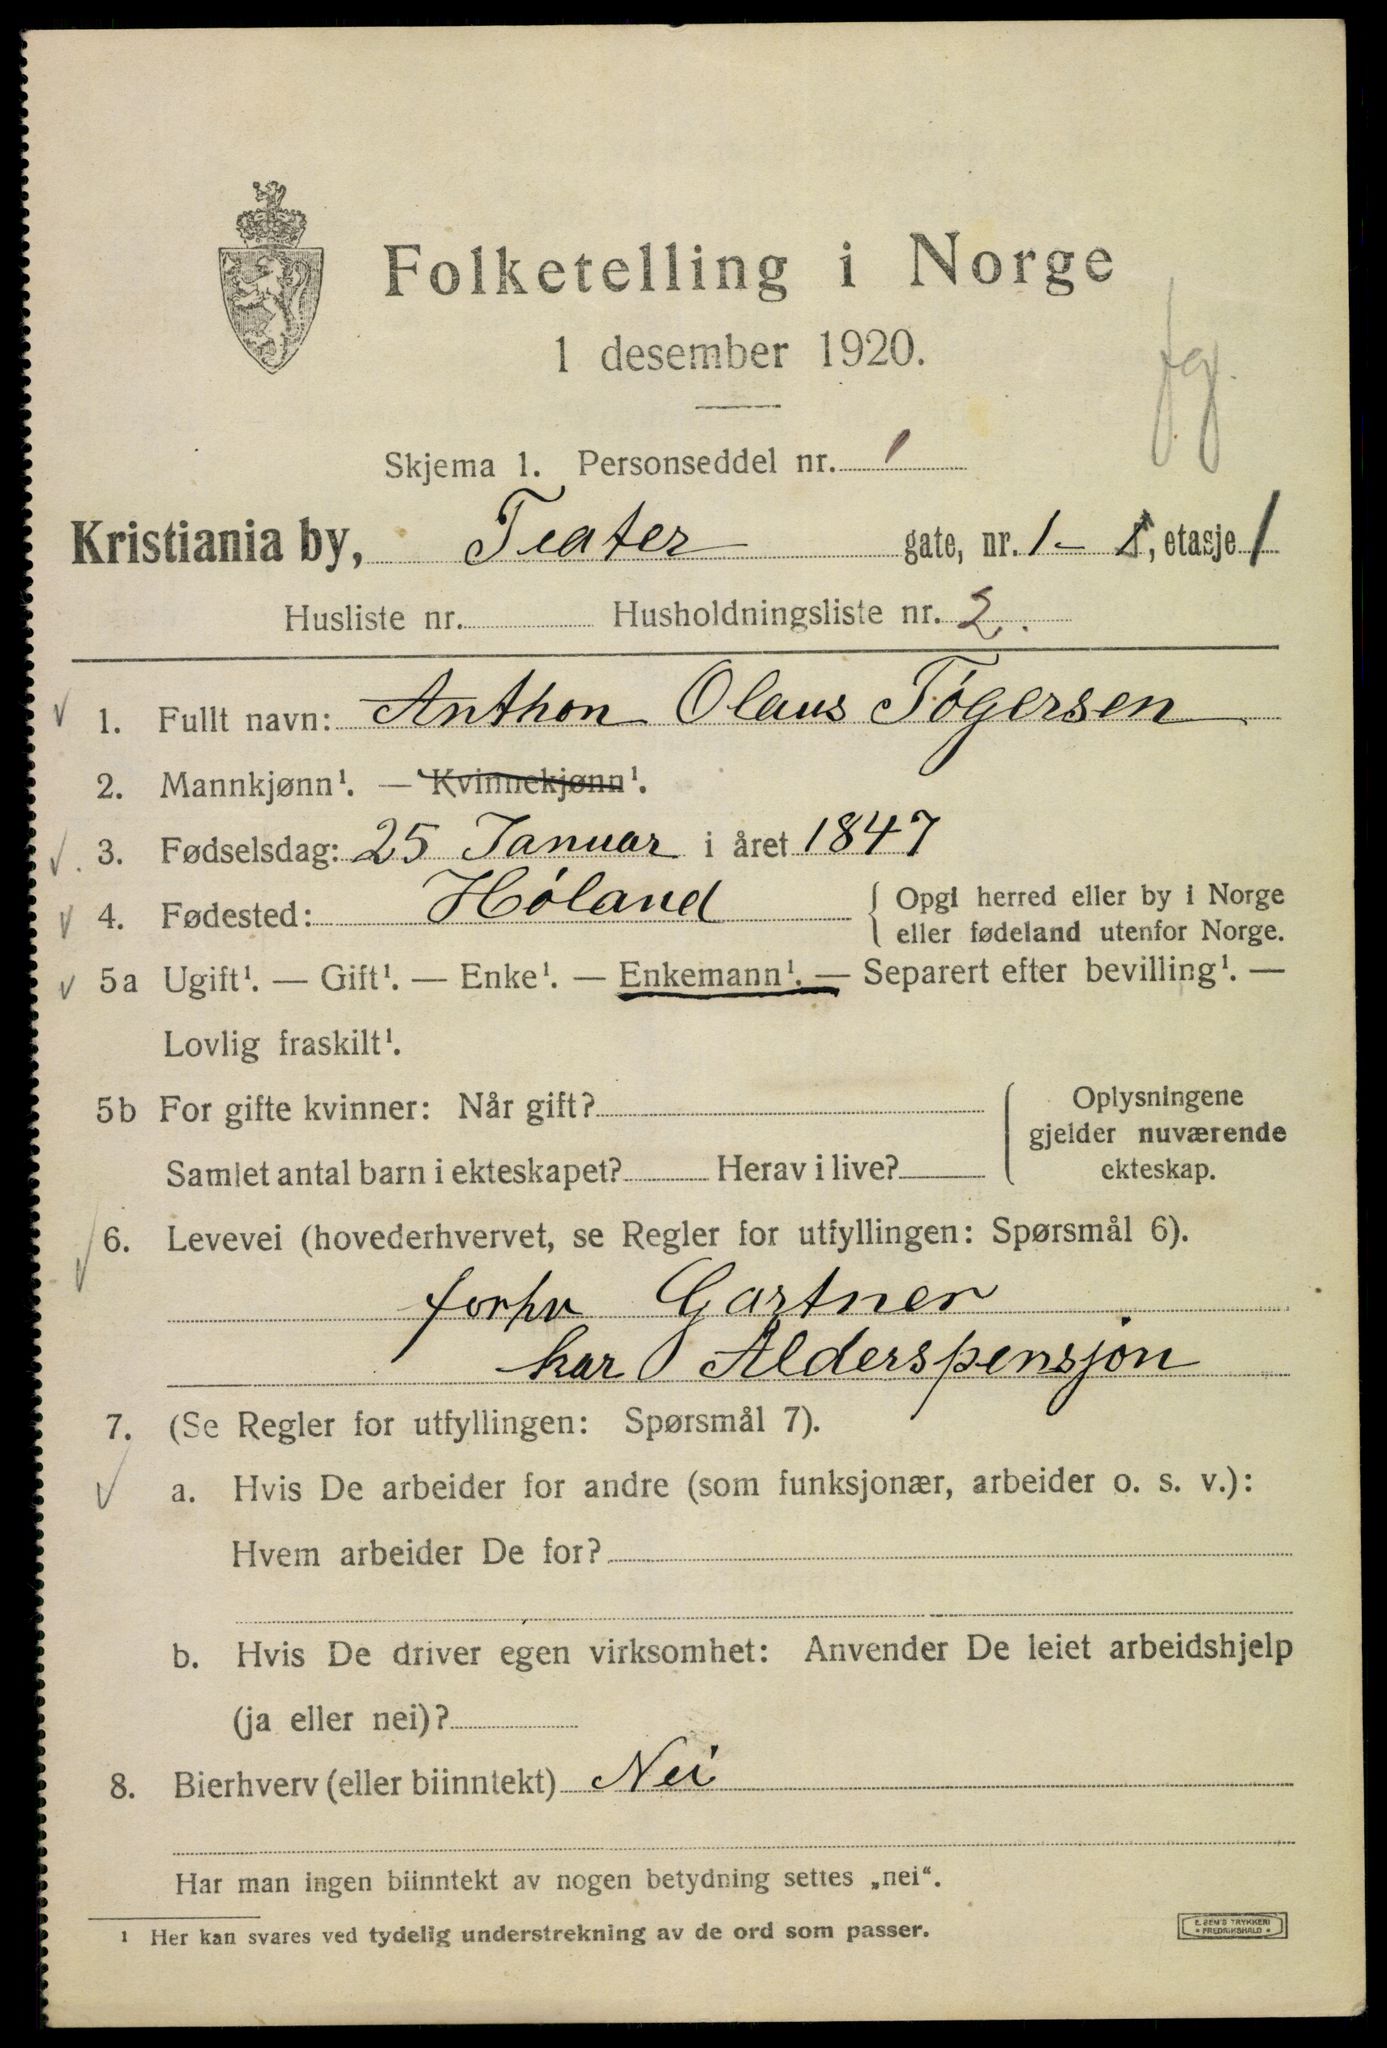 Folketelling i Norge
1 desember 1920.
Skjema 1. Personseddel nr. 1
Kristiania by, Teater gate, nr. 1 - , etasje 1
Husliste nr. Husholdningsliste nr. 2.
1. Fullt navn: Anthon Olaus Tøgersen
2. Mannkjønn¹. — Kvinnekjønn¹.
3. Fødselsdag: 25 Januar i året 1847
4. Fødested: Høland { Opgi herred eller by i Norge
eller fødeland utenfor Norge.
5a Ugift¹. — Gift¹. — Enke¹. — Enkemann¹. — Separert efter bevilling¹. —
Lovlig fraskilt¹.
5b For gifte kvinner: Når gift?
Samlet antal barn i ekteskapet? Herav i live?
Oplysningene
gjelder nuværende
ekteskap.
6. Levevei (hovederhvervet, se Regler for utfyllingen: Spørsmål 6).
forhv Gartner
har Alderspensjon
7. (Se Regler for utfyllingen: Spørsmål 7).
a. Hvis De arbeider for andre (som funksjonær, arbeider o. s. v.):
Hvem arbeider De for?
b. Hvis De driver egen virksomhet: Anvender De leiet arbeidshjelp
(ja eller nei)?
8. Bierhverv (eller biinntekt) Nei
Har man ingen biinntekt av nogen betydning settes „nei“.
¹ Her kan svares ved tydelig understrekning av de ord som passer.
E. SEM'S TRYKKERI
* FREDRIKSHALD *